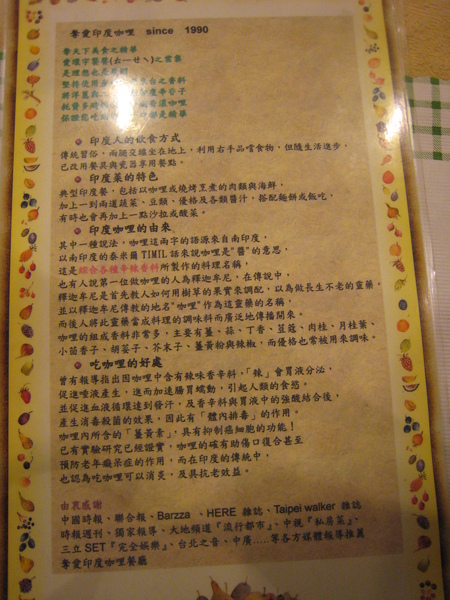 摯愛印度咖哩 since 1990
摯天下美食之精華
是理想也是
堅持使用
將洋蔥
純費多時
保證您吃的 口都是精華
印度人的飲食方式
傳統習俗,兩腿交纏坐在地上,利用右手品嚐食物,但隨生活進步,
已改用餐具與瓷器享用餐點。
印度菜的特色
典型印度餐,包括以咖哩或燒烤烹煮的肉類與海鮮,
加上一到兩道蔬菜、豆類、優格及各類醬汁,搭配麵餅或飯吃,
有時也會再加上一點沙拉或酸菜。
印度咖哩的由來
其中一種說法,咖哩這兩字的語源來自南印度,
以南印度的泰米爾 TIMIL 話來說咖哩是"醬"的意思,
這是綜合各種辛辣香料所製作的料理名稱。
也有人說第一位做咖哩的人為釋迦牟尼,在傳說中,
釋迦牟尼是首先教人如何用樹草的果實來調配,以為做長生不老的靈藥,
並以釋迦牟尼傳教的地名"咖哩"作為這靈藥的名稱,
而後人將此靈藥當成料理的調味料而廣泛地傳播開來。
咖哩的組成香料非常多,主要有薑、蒜、丁香、荳蔻、肉桂、月桂葉、
小茴香子、胡荽子、芥末子、薑黃粉與辣椒,而優格也常被用來調味。
吃咖哩的好處
曾有報導指出因咖哩中含有辣味香辛料,「辣」會胃液分泌,
促進唾液產生,進而加速腸胃蠕動,引起人類的食慾,
並促進血液循環達到發汗,及香辛料與胃液中的強酸結合後,
產生消毒殺菌的效果,因此有「體內排毒」的作用。
咖哩內所含的「薑黃素」,具有抑制癌細胞的功能!
已有實驗研究已經證實,咖哩的確有助傷口復合甚至
預防老年癡呆症的作用,而在印度的傳統中,
也認為吃咖哩可以消炎,及具抗老效益。
由衷感謝
中國時報、聯合報、Barzza 、HERE 雜誌、Taipei walker 雜誌
時報週刊、獨家報導、大地頻道『流行都市』、中視『私房菜』、
三立 SET『完全娛樂』、台北之音、中廣.....等各方媒體報導推薦
摯愛印度咖哩餐廳